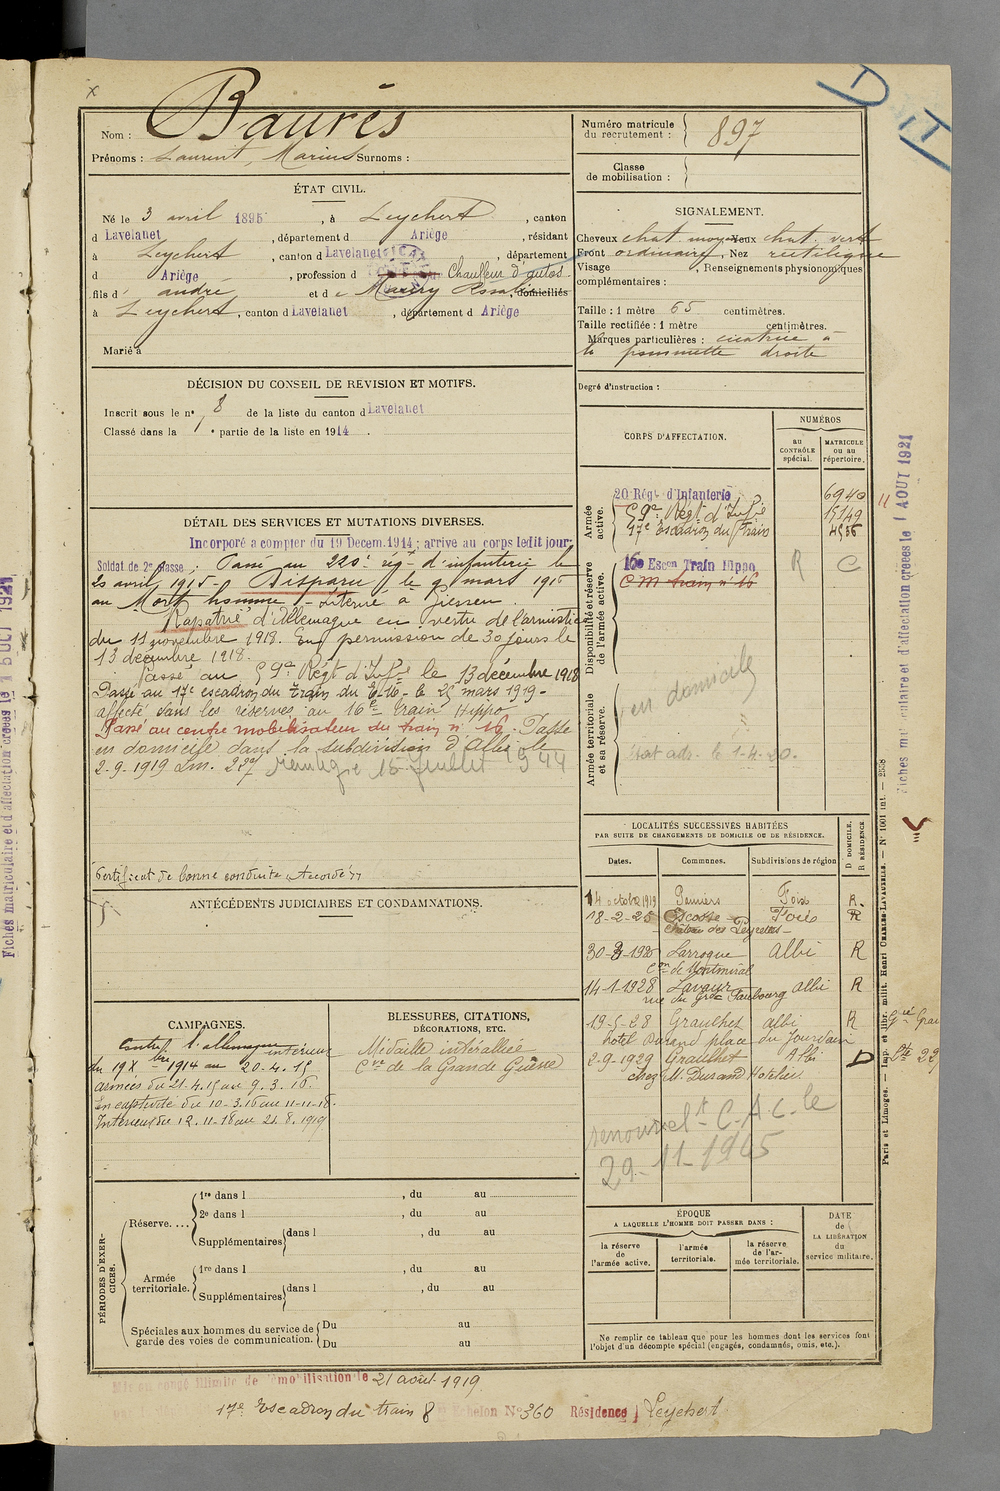 Nom : Baurès
Prénoms : Laurent, Marius Surnoms :
ÉTAT CIVIL.
Né le 3 avril 1895, à Leychert, canton
d Lavelanet, département d Ariège, résidant
à Leychert, canton d Lavelanet, département
d Ariège, profession d Chauffeur d'autos
fils d andré et de Maury Rosalie, domiciliés
à Leychert, canton d Lavelanet, département d Ariège
Marié à
DÉCISION DU CONSEIL DE REVISION ET MOTIFS.
Inscrit sous le n° 8 de la liste du canton d Lavelanet
Classé dans la 1e partie de la liste en 1914.
DÉTAIL DES SERVICES ET MUTATIONS DIVERSES.
Incorporé à compter du 19 Decem. 1914; arrivé au corps ledit jour;
Soldat de 2e classe. Passé au 220e régt d'infanterie le
20 avril 1915. Disparu le 9 mars 1916
au Mort homme. Interné à Giessen.
Rapatrié d'Allemagne en vertu de l'armistice
du 11 novembre 1918. En permission de 30 jours le
13 decembre 1918.
Passé au 59e Régt d'Infie le 13 décembre 1918
Passé au 17e escadron du train du E.16 le 25 mars 1919-
affecté dans les réserves au 16e train Hippo
Passé au centre mobilisateur du train n° 16. Passé
en domicile dans la subdivision d'Albi le
2-9-1919 Lm. 227 15 Juillet 1944
Certificat de bonne conduite "Accordé"
ANTÉCÉDENTS JUDICIAIRES ET CONDAMNATIONS.
CAMPAGNES.
Contre l'allemagne
intérieur
du 19 Xbre 1914 au 20-4.15
armées du 21-4.15 au 9.3.16.
En captivité du 10-3.16 au 11-11-18.
Intérieur du 12.11-18 au 21.8.1919
BLESSURES, CITATIONS,
DÉCORATIONS, ETC.
Médaille interalliée
Cve de la Grande Guerre
PÉRIODES D'EXERCICES.
Réserve....
1re dans l , du au
2e dans l , du au
Supplémentaires dans l , du au
Armée territoriale.
1re dans l , du au
Supplémentaires dans l , du au
Spéciales aux hommes du service de garde des voies de communication.
Du au
Du au
Mis en congé illimité de démobilisation le 21 août 1919
17e Escadron du train 8 Echelon N° 360 Résidence Leychert
Numéro matricule du recrutement : 897
Classe de mobilisation :
SIGNALEMENT.
Cheveux chat. moy. Yeux chat. vert
Front ordinaire, Nez rectiligne
Visage , Renseignements physionomiques
complémentaires :
Taille : 1 mètre 65 centimètres.
Taille rectifiée : 1 mètre centimètres.
Marques particulières : cicatrice à
la pommette droite
Degré d'instruction :
CORPS D'AFFECTATION.
NUMÉROS
au CONTRÔLE spécial.
MATRICULE ou au répertoire.
Armée active.
20 Régt d'Infanterie 6940
59e Régt d'Infie 15149
17e Escadron du Train 4556
Disponibilité et réserve de l'armée active.
16e Escon Train Hippo R C
C M train n° 16
Armée territoriale et sa réserve.
en domicile
LOCALITÉS SUCCESSIVES HABITÉES
PAR SUITE DE CHANGEMENTS DE DOMICILE OU DE RÉSIDENCE.
Dates. Communes. Subdivisions de région D DOMICILE, R RÉSIDENCE
14 octobre 1919 Pamiers Foix R.
18-2-25 Escosse Foix R
Château des Peyretes
30-3-1926 Larroque Albi R
Con de Montmiral
14-1-1928 Lavaur Albi R
rue du Gd Faubourg
19-5-28 Graulhet albi R
hotel Durand place du Jourdain
2-9-1929 Graulhet Albi D
chez M. Durand Hotelier
C.A.C. le
29-11-1945
ÉPOQUE
A LAQUELLE L'HOMME DOIT PASSER DANS :
la réserve de l'armée active.
l'armée territoriale.
la réserve de l'armée territoriale.
DATE de LA LIBÉRATION du service militaire.
Ne remplir ce tableau que pour les hommes dont les services font
l'objet d'un décompte spécial (engagés, condamnés, omis, etc.).
Paris et Limoges. — Imp. et libr. milit. Henri CHARLES-LAVAUZELLE. — N° 1001 int. — 2558